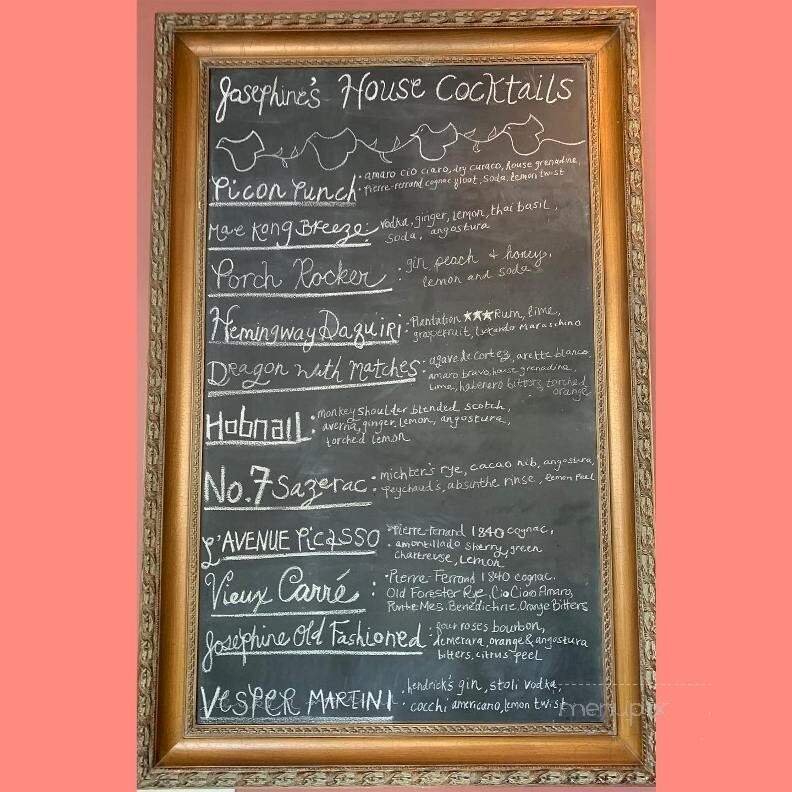 Josephine's House Cocktails
Picon Punch: amaro cio ciaro, dry curaco, house grenadine,
pierre-ferrand cognac float, soda, lemon twist
Mae Kong Breeze: vodka, ginger, lemon, thai basil,
soda, angostura
Porch Rocker: gin, peach + honey,
lemon and soda
Hemingway Daquiri: Plantation ★★★ Rum, lime,
grapefruit, luxardo Maraschino
Dragon with Matches: agave de cortez, arette blanco,
amaro bravo, house grenadine,
lime, habenero bitters, torched
orange
Hobnail: monkey shoulder blended scotch,
averna, ginger, lemon, angostura,
torched lemon
No.7 Sazerac: michter's rye, cacao nib, angostura,
peychaud's, absinthe rinse, lemon peel
L'AVENUE PICASSO: Pierre-Ferrand 1840 cognac,
amontillado sherry, green
chartreuse, lemon
Vieux Carré: Pierre-Ferrand 1840 cognac.
Old Forester Rye, Cio Ciaro Amaro,
Punt e Mes, Benedictine, Orange Bitters
Josephine Old Fashioned: four roses bourbon,
demerara, orange & angostura
bitters, citrus peel
VESPER MARTINI: hendrick's gin, stoli vodka,
cocchi americano, lemon twist
menupix